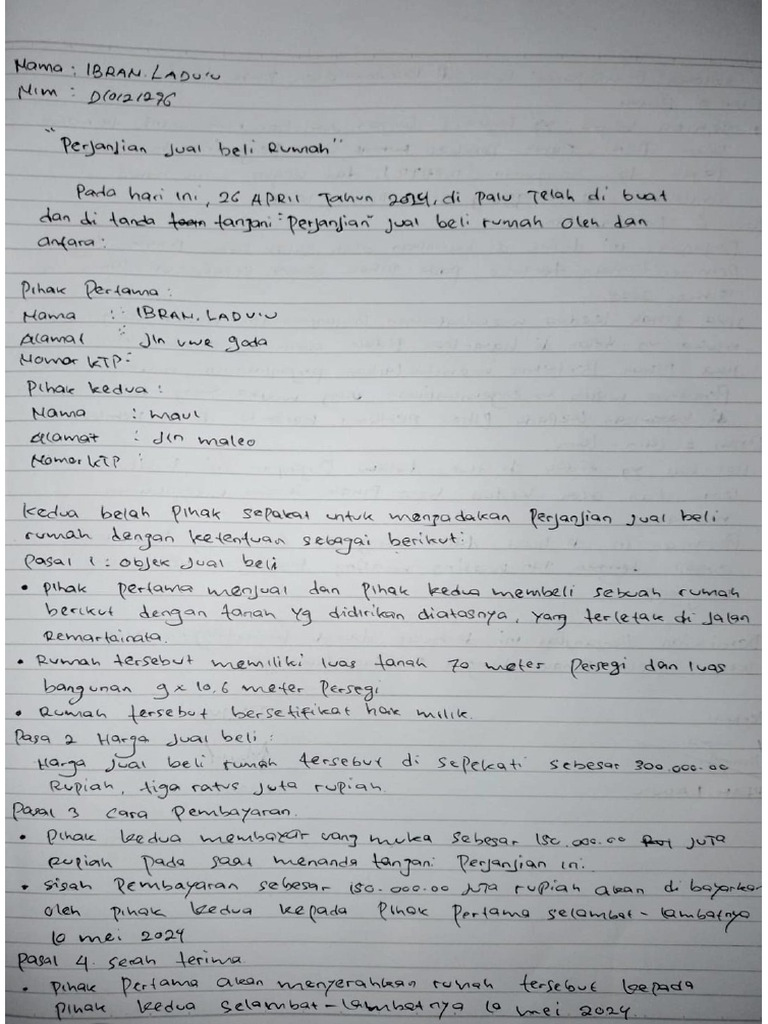 Nama : IBRAN. LADUU
Nim : D10121296
"Perjanjian jual beli Rumah"
Pada hari ini, 26 APRIL Tahun 2024, di palu Telah di buat
dan di tanda tangani "perjanjian" jual beli rumah oleh dan
antara :
Pihak Pertama :
Nama : IBRAN. LADUU
Alamat : Jln uwe gada
Nomor KTP :
Pihak kedua :
Nama : maul
Alamat : Jln maleo
Nomor KTP :
Kedua belah pihak sepakat untuk menpadakan perjanjian jual beli
rumah dengan ketentuan sebagai berikut :
Pasal 1 : objek jual beli
• pihak pertama menjual dan pihak kedua membeli sebuah rumah
berikut dengan tanah yg didirikan diatasnya, yang terletak di Jalan
Remartainata.
• Rumah tersebut memiliki luas tanah 70 meter persegi dan luas
bangunan 9 x 10,6 meter persegi
• Rumah tersebut bersetifikat hak milik.
Pasa 2 Harga jual beli :
Harga jual beli rumah tersebut di sepekati sebesar 300.000.00
Rupiah, tiga ratus juta rupiah.
Pasal 3 cara pembayaran.
• Pihak kedua membayar uang muka sebesar 150.000.00 JUTA
Rupiah pada saat menanda tangani perjanjian ini.
• Sisah pembayaran sebesar 150.000.00 juta rupiah akan di bayarkan
oleh pihak kedua kepada pihak pertama selambat-lambatnya
10 mei 2024
Pasal 4. serah terima.
• Pihak pertama akan menyerahkan rumah tersebut kepada
pihak kedua selambat-lambatnya 10 mei 2024.